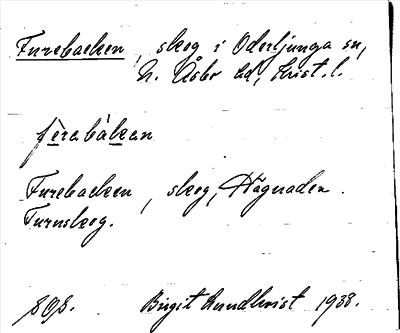 Furebacken, skog i Oderljunga sn,
N. Åsbo hd, Krist. l.
fùrabàkan
Furebacken, skog, Hägnaden.
Furuskog.
Birgit Lundkvist 1938.